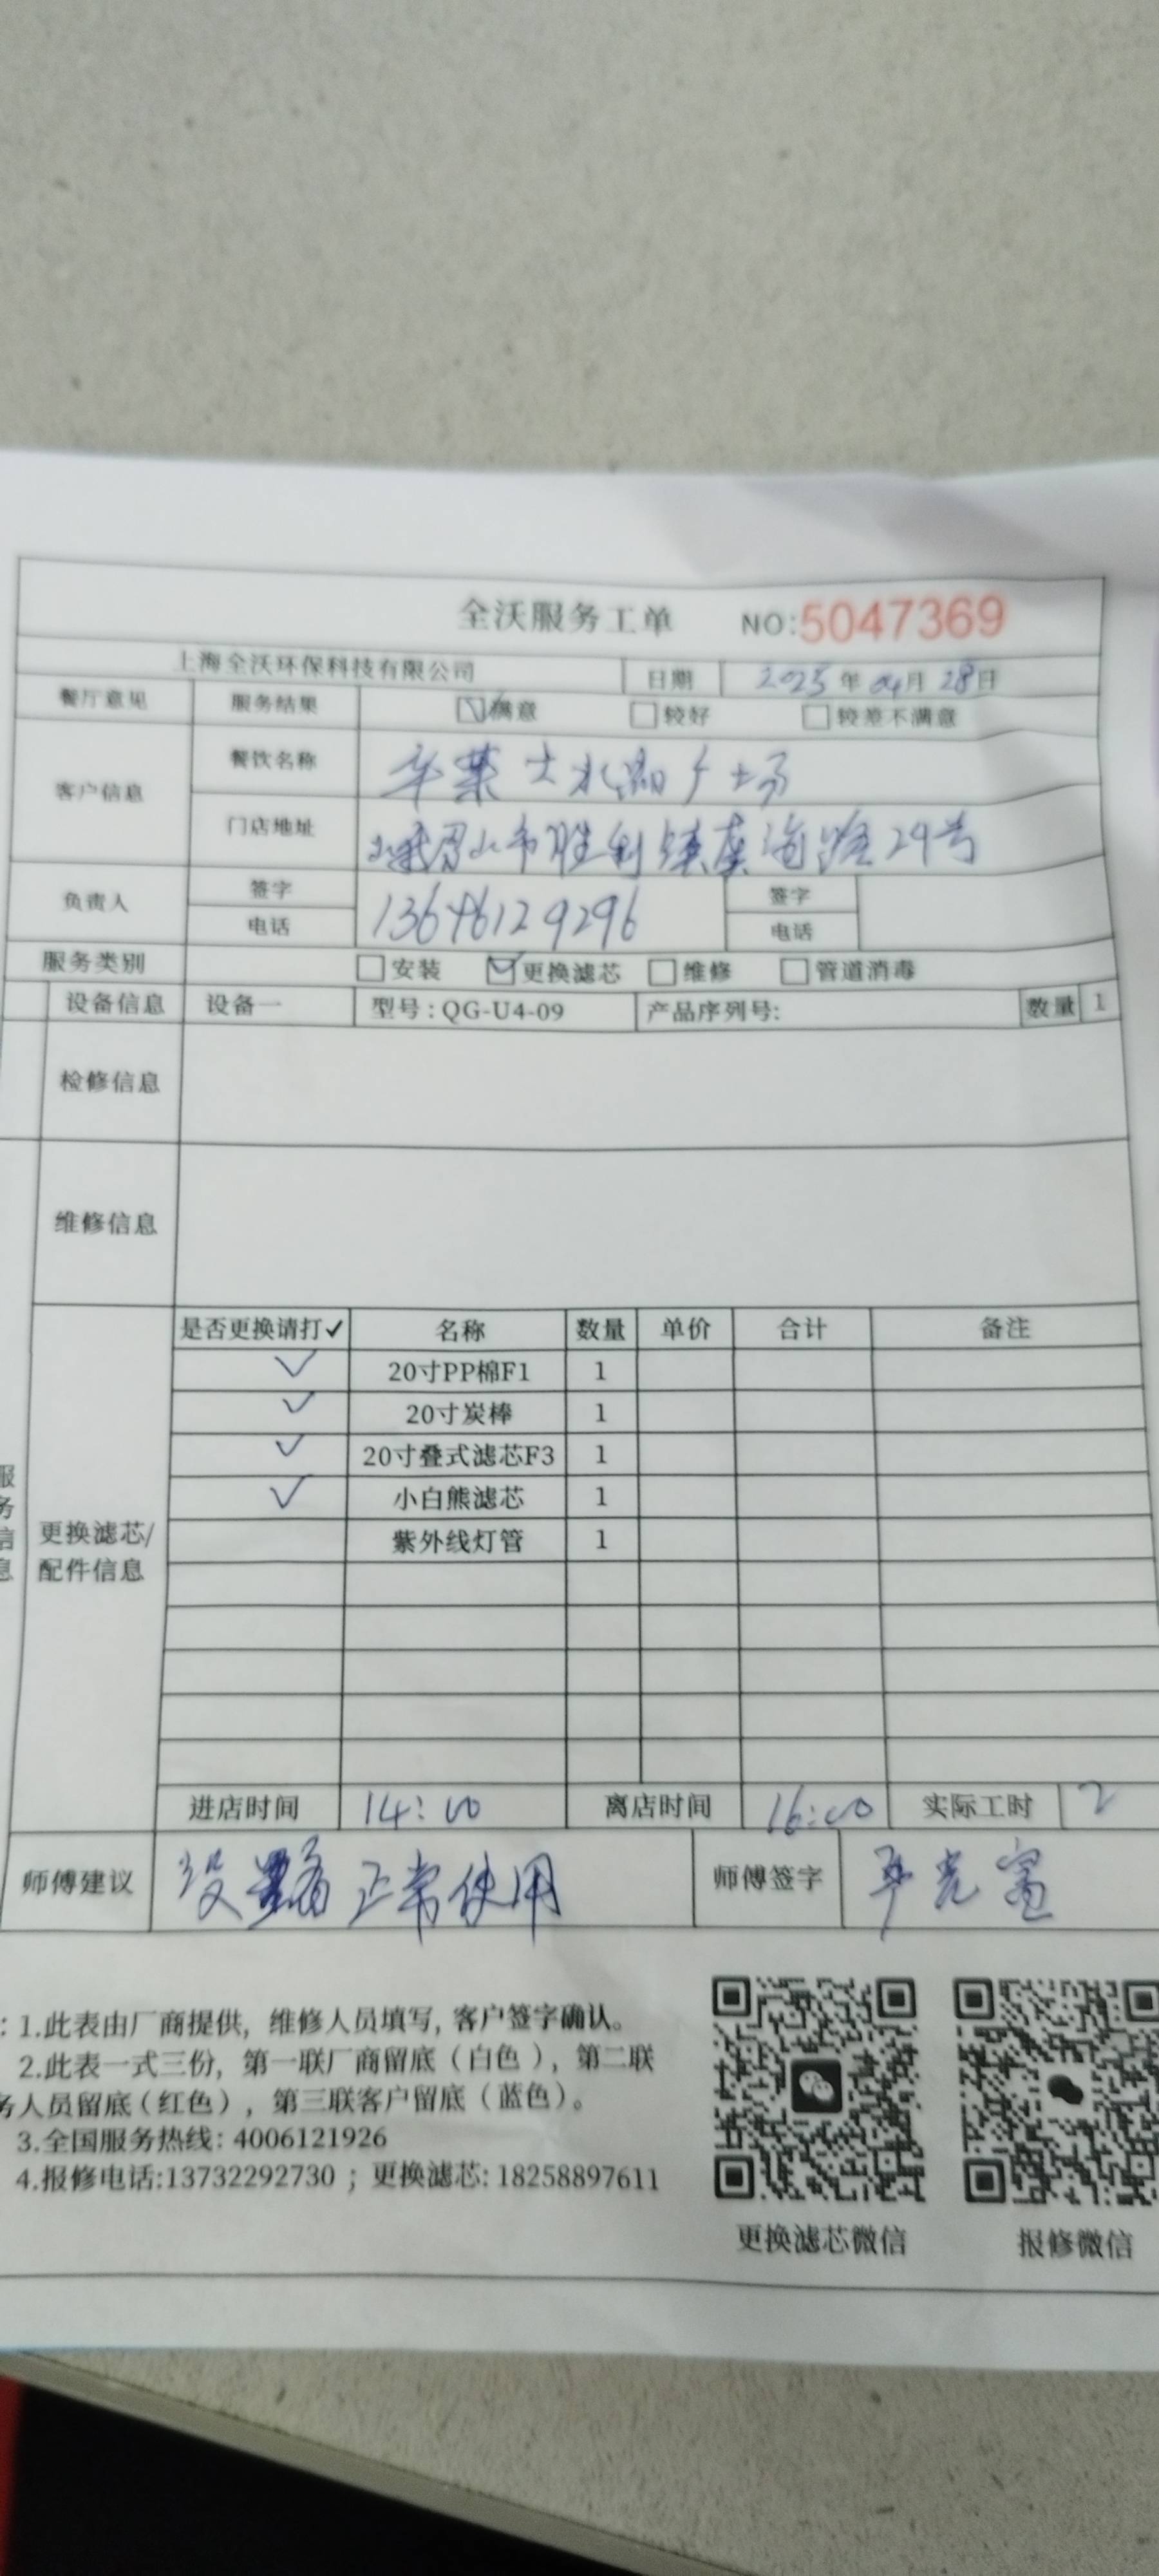 全沃服务工单 NO:5047369
上海全沃环保科技有限公司 日期 2025年04月28日
餐厅意见 服务结果 满意 较好 较差不满意
客户信息 餐饮名称 广场
门店地址 峨眉山市胜利镇 路29号
负责人 签字 签字
电话 13646129296 电话
服务类别 安装 更换滤芯 维修 管道消毒
设备信息 设备一 型号:QG-U4-09 产品序列号: 数量 1
检修信息
维修信息
是否更换请打✓ 名称 数量 单价 合计 备注
✓ 20寸PP棉F1 1
✓ 20寸炭棒 1
✓ 20寸叠式滤芯F3 1
✓ 小白熊滤芯 1
紫外线灯管 1
服务信息
更换滤芯/
配件信息
进店时间 14:00 离店时间 16:00 实际工时 2
师傅建议 设备正常使用 师傅签字
: 1.此表由厂商提供, 维修人员填写, 客户签字确认。
2.此表一式三份, 第一联厂商留底(白色), 第二联
务人员留底(红色), 第三联客户留底(蓝色)。
3.全国服务热线: 4006121926
4.报修电话:13732292730 ; 更换滤芯: 18258897611
更换滤芯微信 报修微信